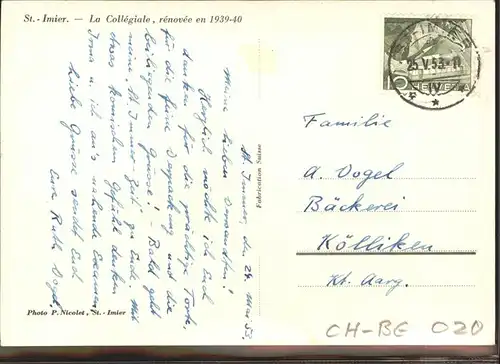 St.-Imier. — La Collégiale, rénovée en 1939-40
St. Immer, den 24. Mai 53.
Meine lieben Verwandten!
Herzlich möchte ich Euch
danken für die prächtige Torte,
für die feine Verpackung und die
beiliegenden Grüsse! - Bald geht
meine "St. Immer-Zeit" zu Ende. Mit
etwas komischen Gefühl denken
Irma u. ich an's nahende Examen.
Liebe Grüsse sendet Euch
Eure Ruth Vogel.
Photo P. Nicolet, St.-Imier
Fabrication Suisse
ST-IMIER
25.V.53.-11
IV
10
HELVETIA
Familie
A. Vogel
Bäckerei
Kölliken
Kt. Aarg.
CH-BE 020